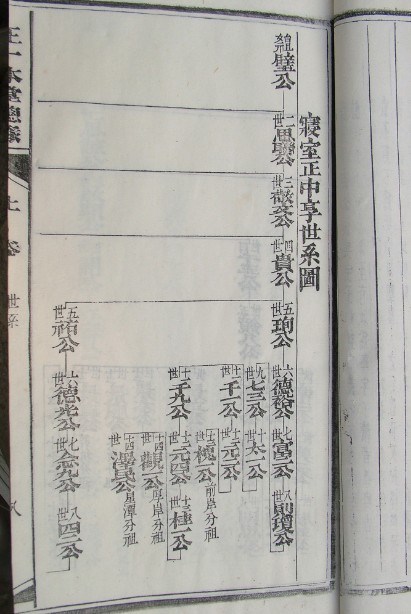 寢室正中享世系圖
璧公
二世思聰公
三世敬公
四世貴公
五世珣公
六世德裕公
七世富二公
八世則瓊公
九世七三公
十世太二公
十一世千一公
十二世元二公
十三世槐一公前岸分祖
十四世觀一公厚岸分祖
十一世千九公
十二世元四公
十三世桂一公
十四世澤民公星潭分祖
五世祐公
六世德光公
七世念九公
八世四二公
上卷
世系
八